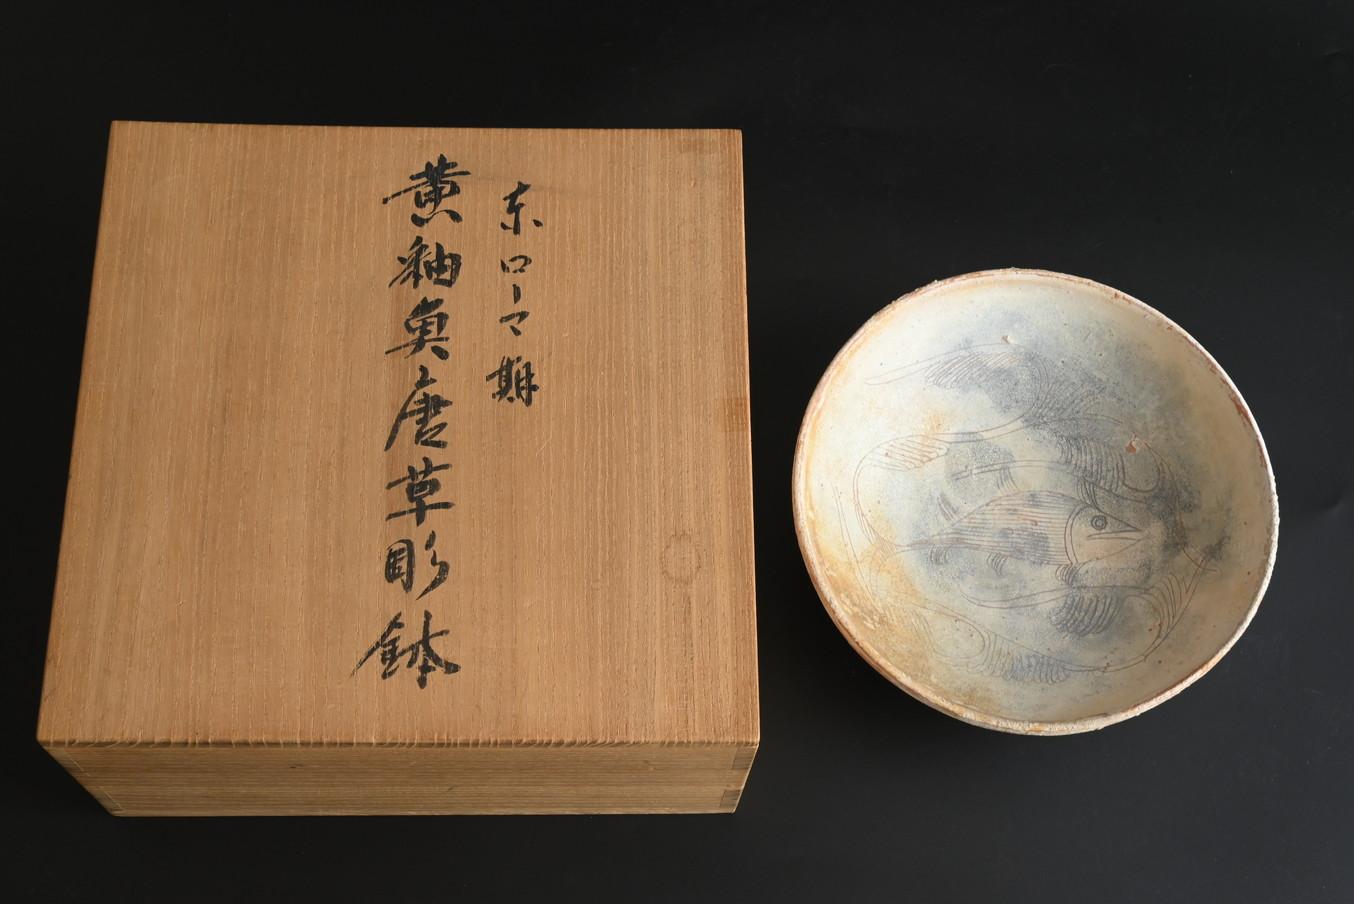 東ローマ期
黄釉魚唐草彫鉢